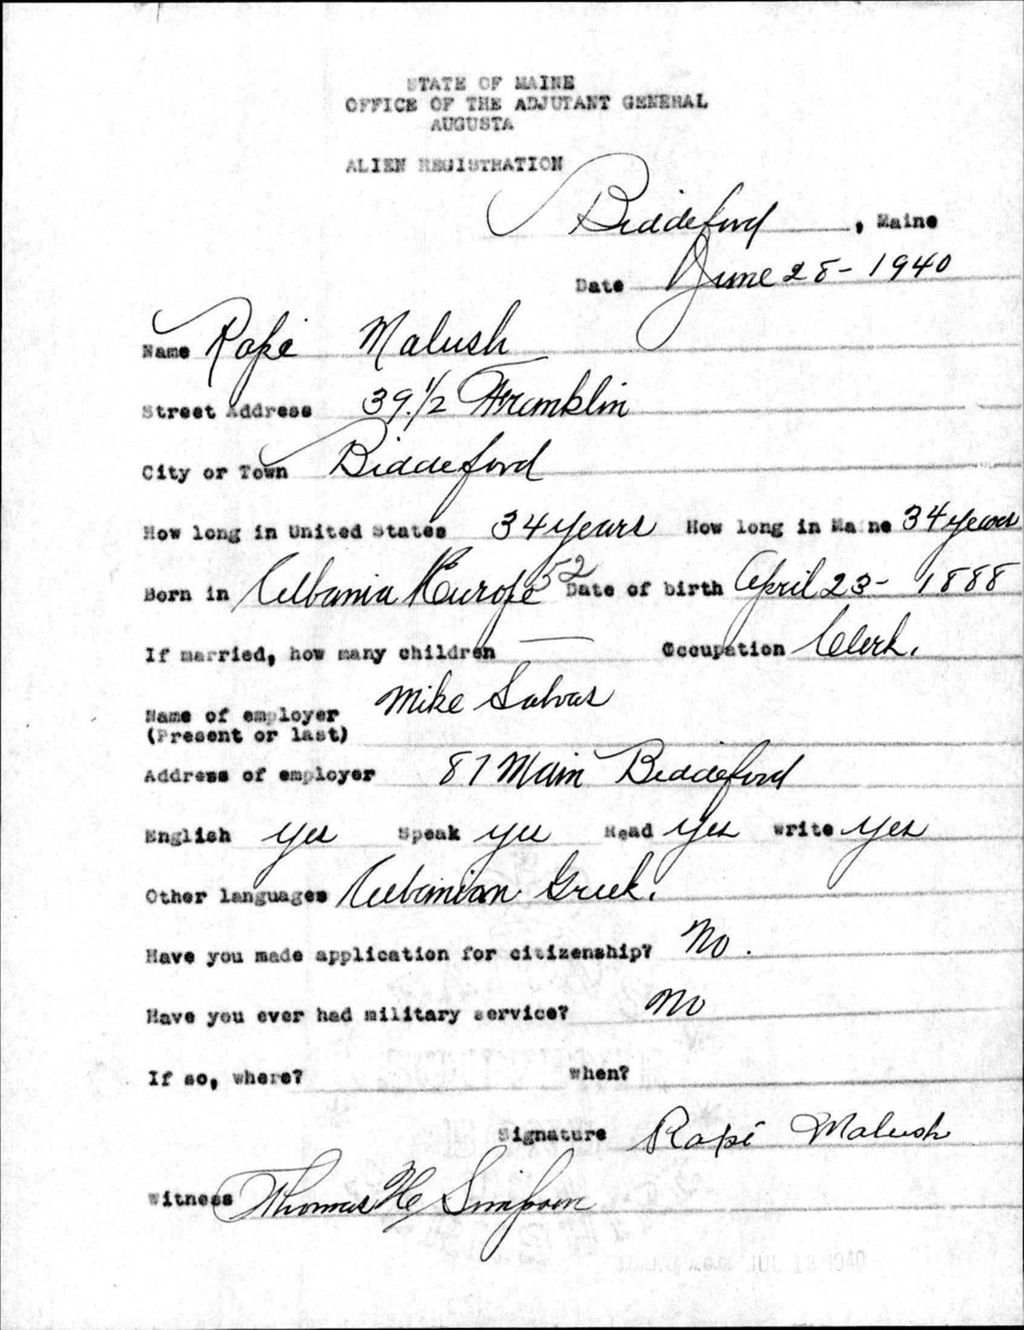 STATE OF MAINE
OFFICE OF THE ADJUTANT GENERAL
AUGUSTA
ALIEN REGISTRATION
Biddeford, Maine
Date June 28 - 1940
Name Rapi Malush
Street Address 39.1/2 Franklin
City or Town Biddeford
How long in United States 34 years How long in Maine 34 years
Born in Albania Europe 52 Date of birth April 23 - 1888
If married, how many children — Occupation Clerk.
Mike Salvas
Name of employer
(Present or last)
Address of employer 87 Main Biddeford
English yes Speak yes Read yes Write yes
Other languages Albanian Greek.
Have you made application for citizenship? No.
Have you ever had military service? No
If so, where? When?
Signature Rapi Malush
Witness Thomas H Simpson